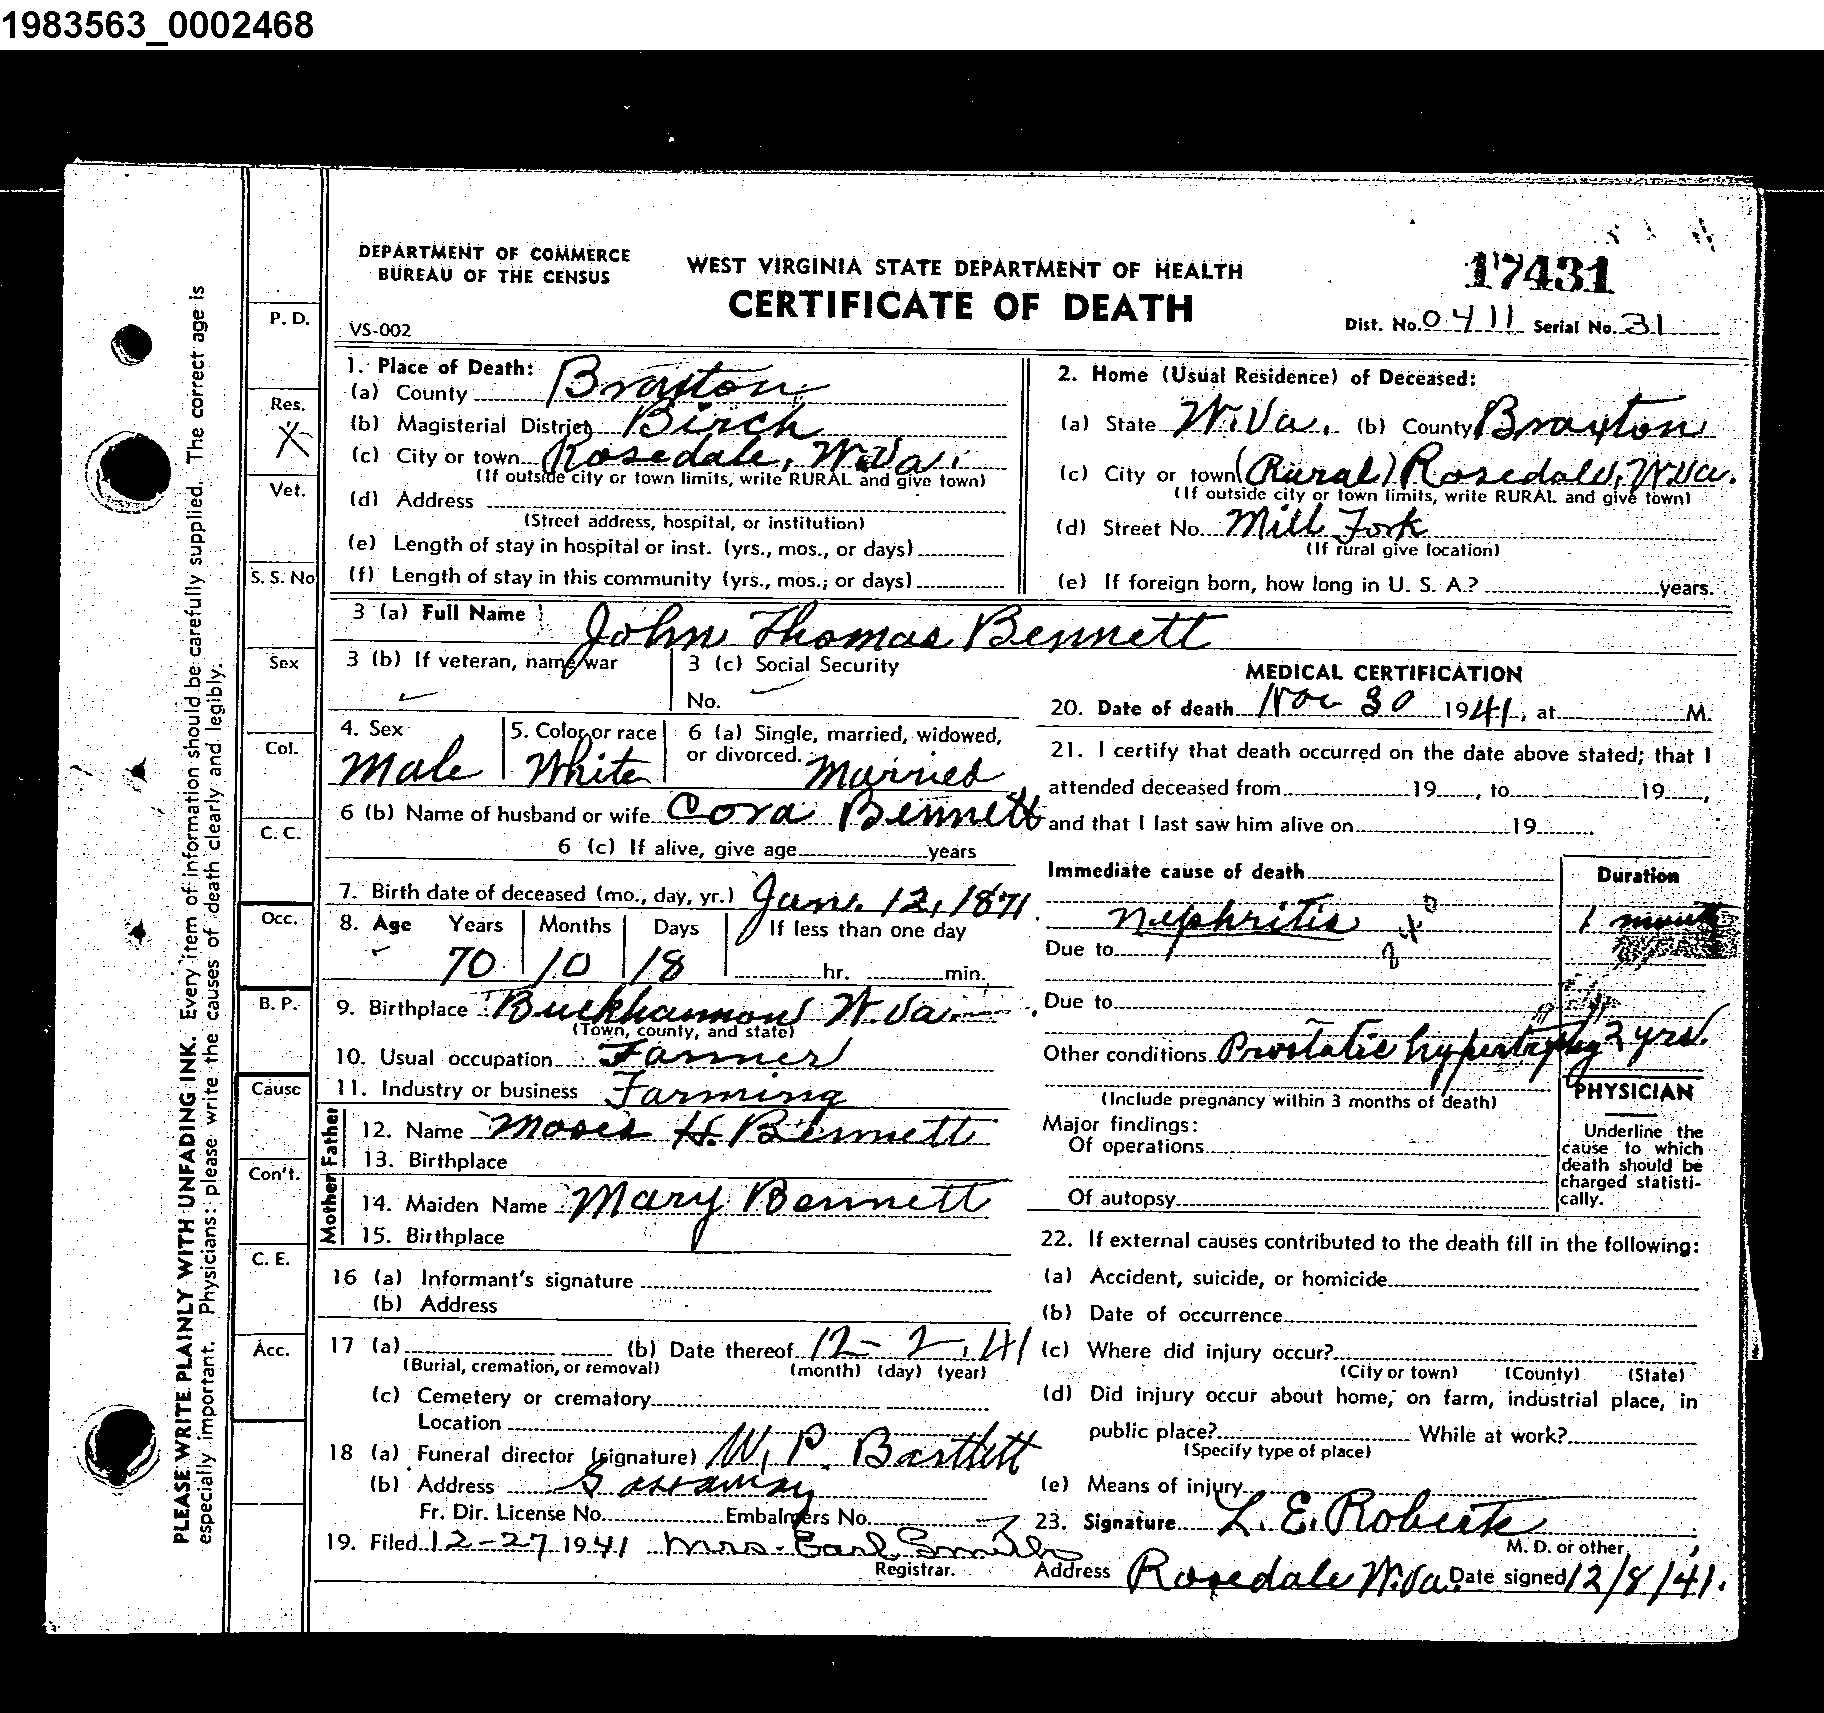 1983563_0002468
DEPARTMENT OF COMMERCE
BUREAU OF THE CENSUS
WEST VIRGINIA STATE DEPARTMENT OF HEALTH
CERTIFICATE OF DEATH
17431
VS-002
Dist. No. 0411 Serial No. 31
PLEASE WRITE PLAINLY WITH UNFADING INK. Every item of information should be carefully supplied. The correct age is
especially important. Physicians: please write the causes of death clearly and legibly.
P. D.
Res.
X
Vet.
S. S. No
Sex
Col.
C. C.
Occ.
B. P.
Cause
Con't.
C. E.
Acc.
1. Place of Death:
(a) County Braxton
(b) Magisterial District Birch
(c) City or town Rosedale, W.Va.
(If outside city or town limits, write RURAL and give town)
(d) Address
(Street address, hospital, or institution)
(e) Length of stay in hospital or inst. (yrs., mos., or days)
(f) Length of stay in this community (yrs., mos.; or days)
2. Home (Usual Residence) of Deceased:
(a) State W.Va. (b) County Braxton
(c) City or town (Rural) Rosedale, W.Va.
(If outside city or town limits, write RURAL and give town)
(d) Street No. Mill Fork
(If rural give location)
(e) If foreign born, how long in U. S. A.? years.
3 (a) Full Name John Thomas Bennett
3 (b) If veteran, name war
3 (c) Social Security
No.
4. Sex
Male
5. Color or race
White
6 (a) Single, married, widowed,
or divorced. Married
6 (b) Name of husband or wife Cora Bennett
6 (c) If alive, give age years
7. Birth date of deceased (mo., day, yr.) Jan. 12, 1871.
8. Age Years Months Days If less than one day
70 10 18 hr. min.
9. Birthplace Buckhannon W.Va
(Town, county, and state)
10. Usual occupation Farmer
11. Industry or business Farming
Father
12. Name Moses H. Bennett
13. Birthplace
Mother
14. Maiden Name Mary Bennett
15. Birthplace
16 (a) Informant's signature
(b) Address
17 (a) (b) Date thereof 12-2, 41
(Burial, cremation, or removal) (month) (day) (year)
(c) Cemetery or crematory
Location
18 (a) Funeral director (signature) W. P. Bartlett
(b) Address Gassaway
Fr. Dir. License No. Embalmers No.
19. Filed 12-27 1941 Mrs. Earl Smith
Registrar.
MEDICAL CERTIFICATION
20. Date of death Nov 30 1941, at M.
21. I certify that death occurred on the date above stated; that I
attended deceased from 19 , to 19 ,
and that I last saw him alive on 19
Immediate cause of death
Duration
Nephritis 1 month
Due to
Due to
Other conditions Prostatic hypertrophy 2 yrs.
(Include pregnancy within 3 months of death)
Major findings:
Of operations
Of autopsy
PHYSICIAN
Underline the
cause to which
death should be
charged statisti-
cally.
22. If external causes contributed to the death fill in the following:
(a) Accident, suicide, or homicide
(b) Date of occurrence
(c) Where did injury occur?
(City or town) (County) (State)
(d) Did injury occur about home, on farm, industrial place, in
public place? While at work?
(Specify type of place)
(e) Means of injury
23. Signature L. E. Roberts
M. D. or other
Address Rosedale W.Va. Date signed 12/8/41.